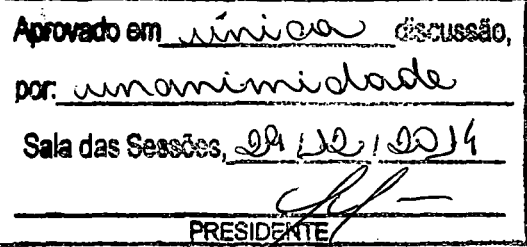 Aprovado em única discussão,
por: unanimidade
Sala das Sessões, 29/12/2014
PRESIDENTE